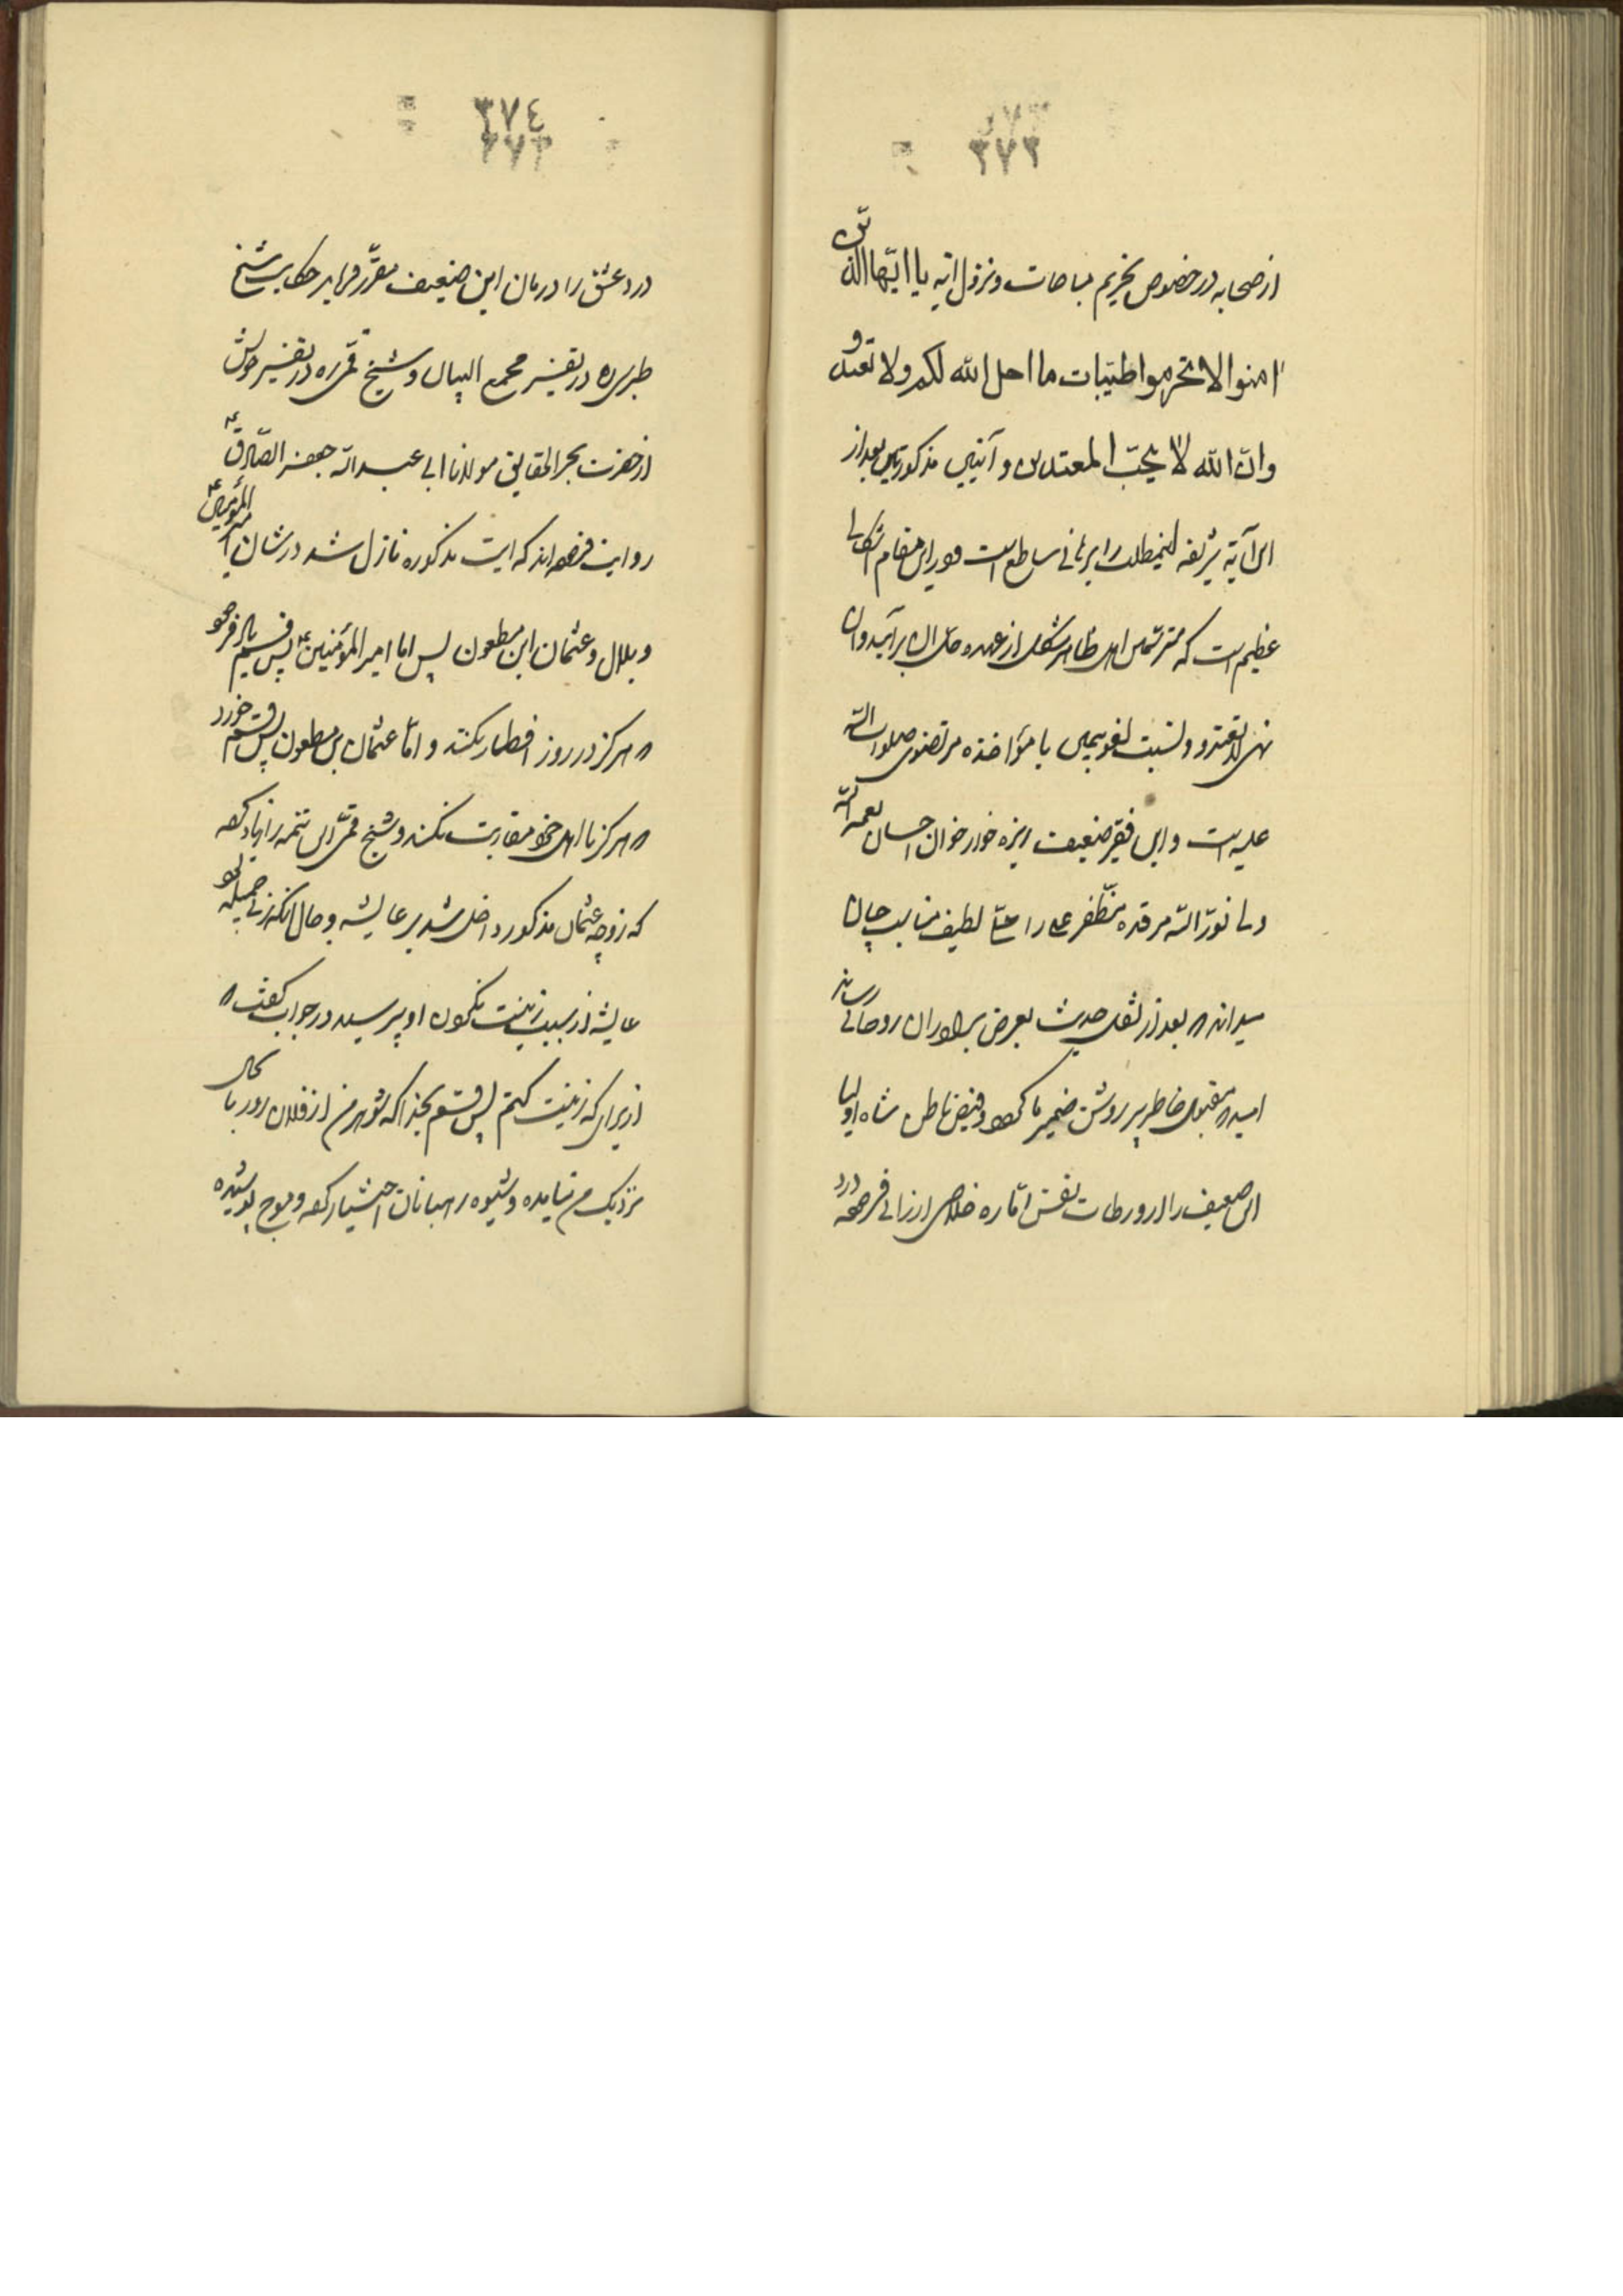 ٣٧٣
از صحابه در خصوص تحریم مباحات و نزول ایه یا ایّها الّذین
امنوا لا تحرموا طیّبات ما احل الله لکم ولا تعتدوا
وان الله لا یحبّ المعتدین و آنیس مذکور پس بعد از
این آیة شریفه اینمطلب را برهانی ساطع است و در این مقام اشکالی
عظیم است که
علیه است و این فقیر ضعیف ریزه خوار خوان احسان نعمة الله
ولی نوّر الله مرقده مظفّر علی را حلّی لطیف مناسب چنان
میداند که بعد از نقل حدیث بعرض برادران روحانی رساند
امید که مقبول خاطر پیر روشن ضمیر ما گردد و فیض باطن شاه اولیا
این ضعیف را از ورطات نفس امّاره خلاصی ارزانی فرموده درد
٣٧٤
درد عشق را درمان این ضعیف مقرّر فرماید حکایت شیخ
طبرسی ره در تفسیر مجمع البیان و شیخ قمّی ره در تفسیر خویش
از حضرت بحر الحقایق مولانا ابی عبد الله جعفر الصّادق ع
روایت فرموده اند که ایت مذکوره نازل شد در شان امیر المؤمنین ع
و بلال و عثمان ابن مظعون پس اما امیر المؤمنین ع پس قسم یاد فرمود
که هرگز در روز افطار نکند و امّا عثمان بن مظعون پس قسم خورد
که هرگز با اهل خود مقاربت نکند و شیخ قمّی این تتمه را زیاد کرده
که زوجه عثمان مذکور داخل شد بر عایشه و حال آنکه زنی جمیله بود
عایشه از سبب زینت نکردن او پرسید در جواب گفت که
از برای که زینت کنم پس قسم بخدا که شوهر من از فلان روز تا بحال
نزدیک من نیامده و شیوه رهبانان اختیار کرده و مسوح پوشیده